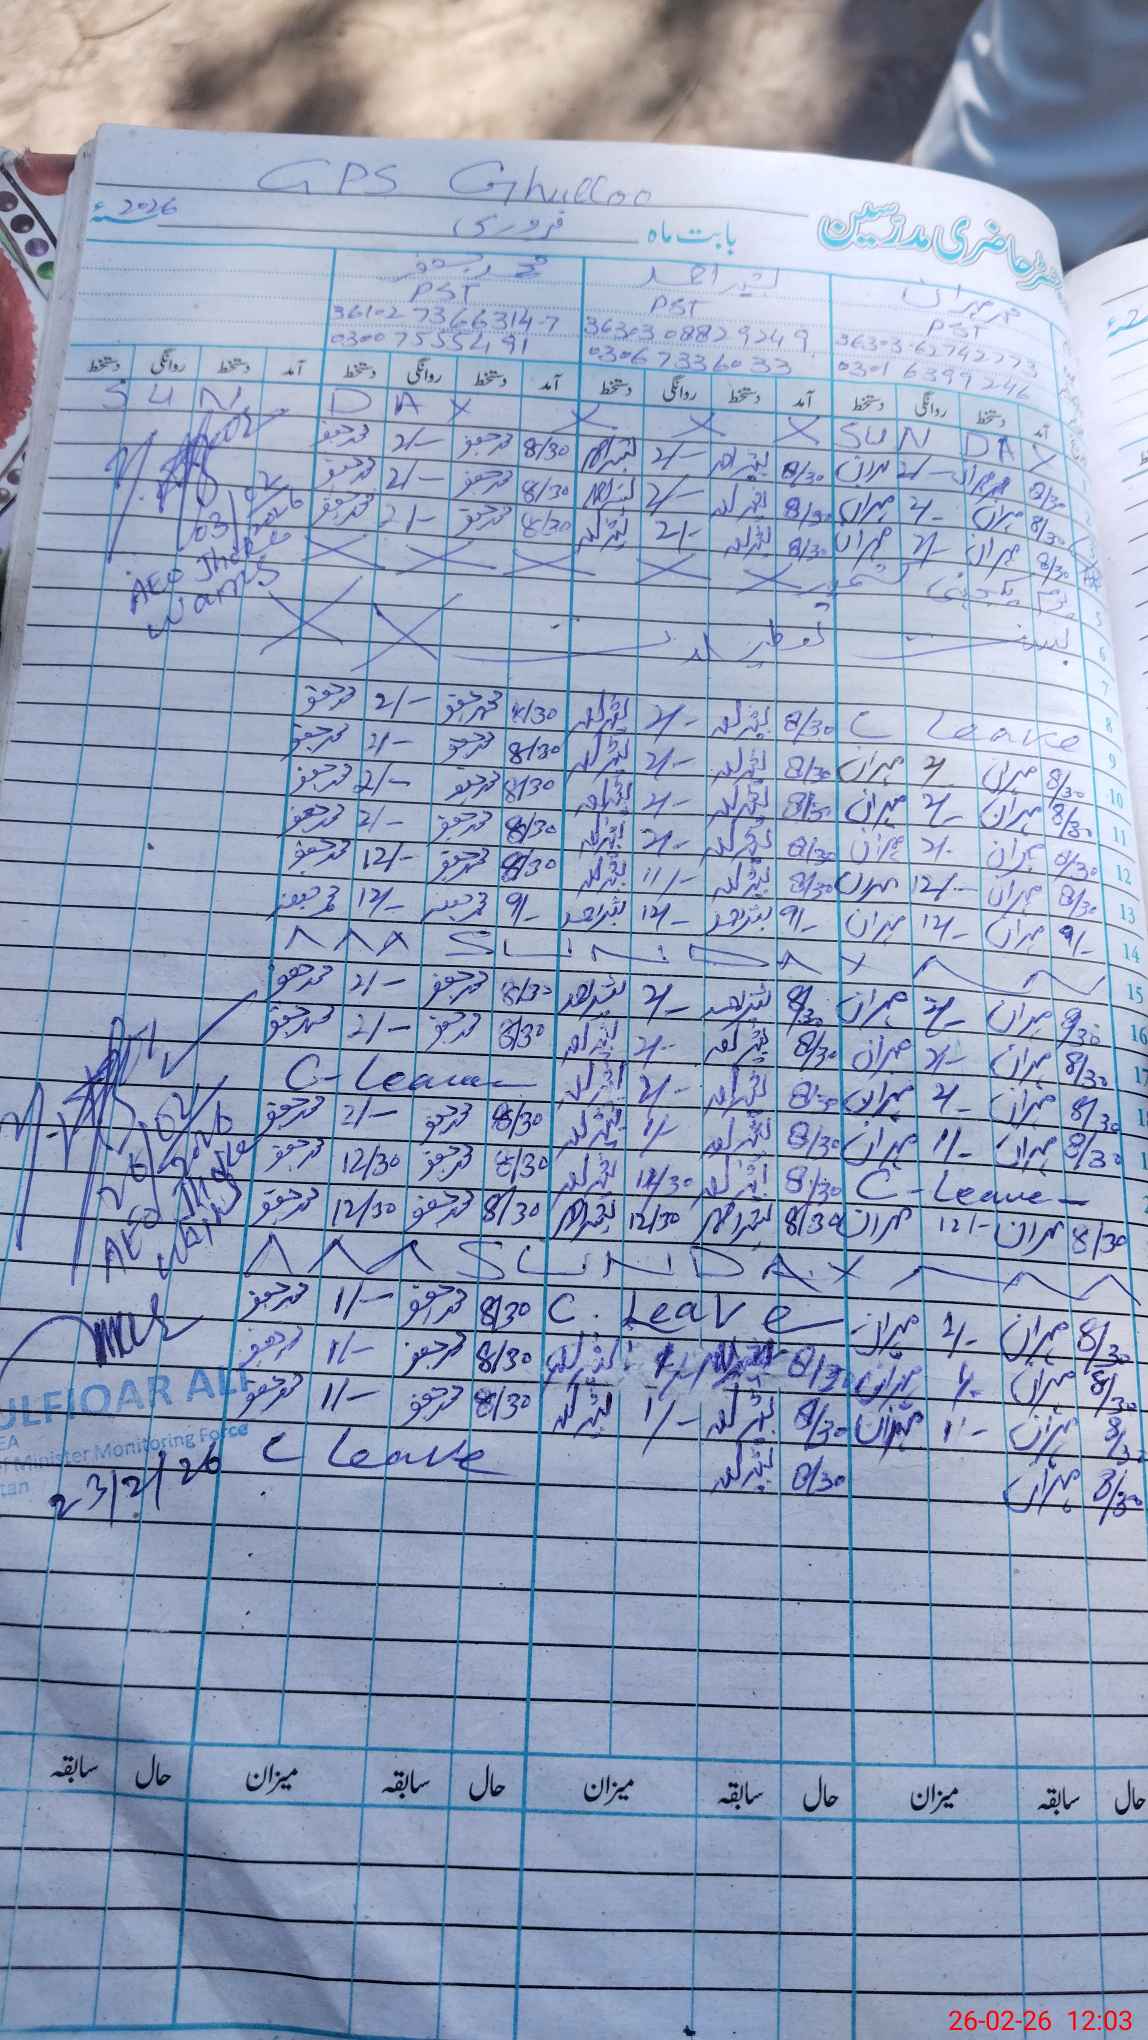 GPS Ghulloo
رجسٹر حاضری مدرسین بابت ماہ فروری 2026ء
مہران بشیر احمد محمد جعفر
PST PST PST
36303-6274277-3 36303 0882924 9 36102 7366314-7
0301 6399246 0306 7336033 0300 7555491
آمد دستخط روانگی دستخط آمد دستخط روانگی دستخط آمد دستخط روانگی دستخط آمد دستخط روانگی دستخط
1 SUN DAY X X X SUN DAY
2 8/30 مہران 2/- مہران 8/30 بشیر احمد 2/- بشیر احمد 8/30 محمد جعفر 2/- محمد جعفر
3 8/30 مہران 2/- مہران 8/30 بشیر احمد 2/- بشیر احمد 8/30 محمد جعفر 2/- محمد جعفر
8/30 مہران 2/- مہران 8/30 بشیر احمد 2/- بشیر احمد 8/30 محمد جعفر 2/- محمد جعفر
03/02/2026
AEO
5 یوم یکجہتی کشمیر X X X X X
6 بسنت X X
7
8
9 C Leave 8/30 بشیر احمد 2/- بشیر احمد 8/30 محمد جعفر 2/- محمد جعفر
10 8/30 مہران 2/- مہران 8/30 بشیر احمد 2/- بشیر احمد 8/30 محمد جعفر 2/- محمد جعفر
11 8/30 مہران 2/- مہران 8/30 بشیر احمد 2/- بشیر احمد 8/30 محمد جعفر 2/- محمد جعفر
12 8/30 مہران 2/- مہران 8/30 بشیر احمد 2/- بشیر احمد 8/30 محمد جعفر 2/- محمد جعفر
13 8/30 مہران 12/- مہران 8/30 بشیر احمد 11/- بشیر احمد 8/30 محمد جعفر 12/- محمد جعفر
14 9/- مہران 12/- مہران 9/- بشیر احمد 12/- بشیر احمد 9/- محمد جعفر 12/- محمد جعفر
15 SUNDAY
16 8/30 مہران 2/- مہران 8/30 بشیر احمد 2/- بشیر احمد 8/30 محمد جعفر 2/- محمد جعفر
17 8/30 مہران 2/- مہران 8/30 بشیر احمد 2/- بشیر احمد 8/30 محمد جعفر 2/- محمد جعفر
8/30 مہران 2/- مہران 8/30 بشیر احمد 2/- بشیر احمد C-Leave
8/30 مہران 1/- مہران 8/30 بشیر احمد 1/- بشیر احمد 8/30 محمد جعفر 2/- محمد جعفر
C-Leave- 8/30 بشیر احمد 12/30 بشیر احمد 8/30 محمد جعفر 12/30 محمد جعفر
8/30 مہران 12/- مہران 8/30 بشیر احمد 12/30 بشیر احمد 8/30 محمد جعفر 12/30 محمد جعفر
AEO
SUNDAY
8/30 مہران 1/- مہران C. Leave 8/30 محمد جعفر 1/- محمد جعفر
8/30 مہران 1/- مہران 8/30 بشیر احمد 8/30 محمد جعفر 1/- محمد جعفر
8/30 مہران 1/- مہران 8/30 بشیر احمد 1/- بشیر احمد 8/30 محمد جعفر 1/- محمد جعفر
8/30 مہران 8/30 بشیر احمد C Leave
ULFIQAR ALI
EA
Minister Monitoring Force
tan
23/2/26
حال سابقہ میزان حال سابقہ میزان حال سابقہ میزان حال سابقہ
26-02-26 12:03